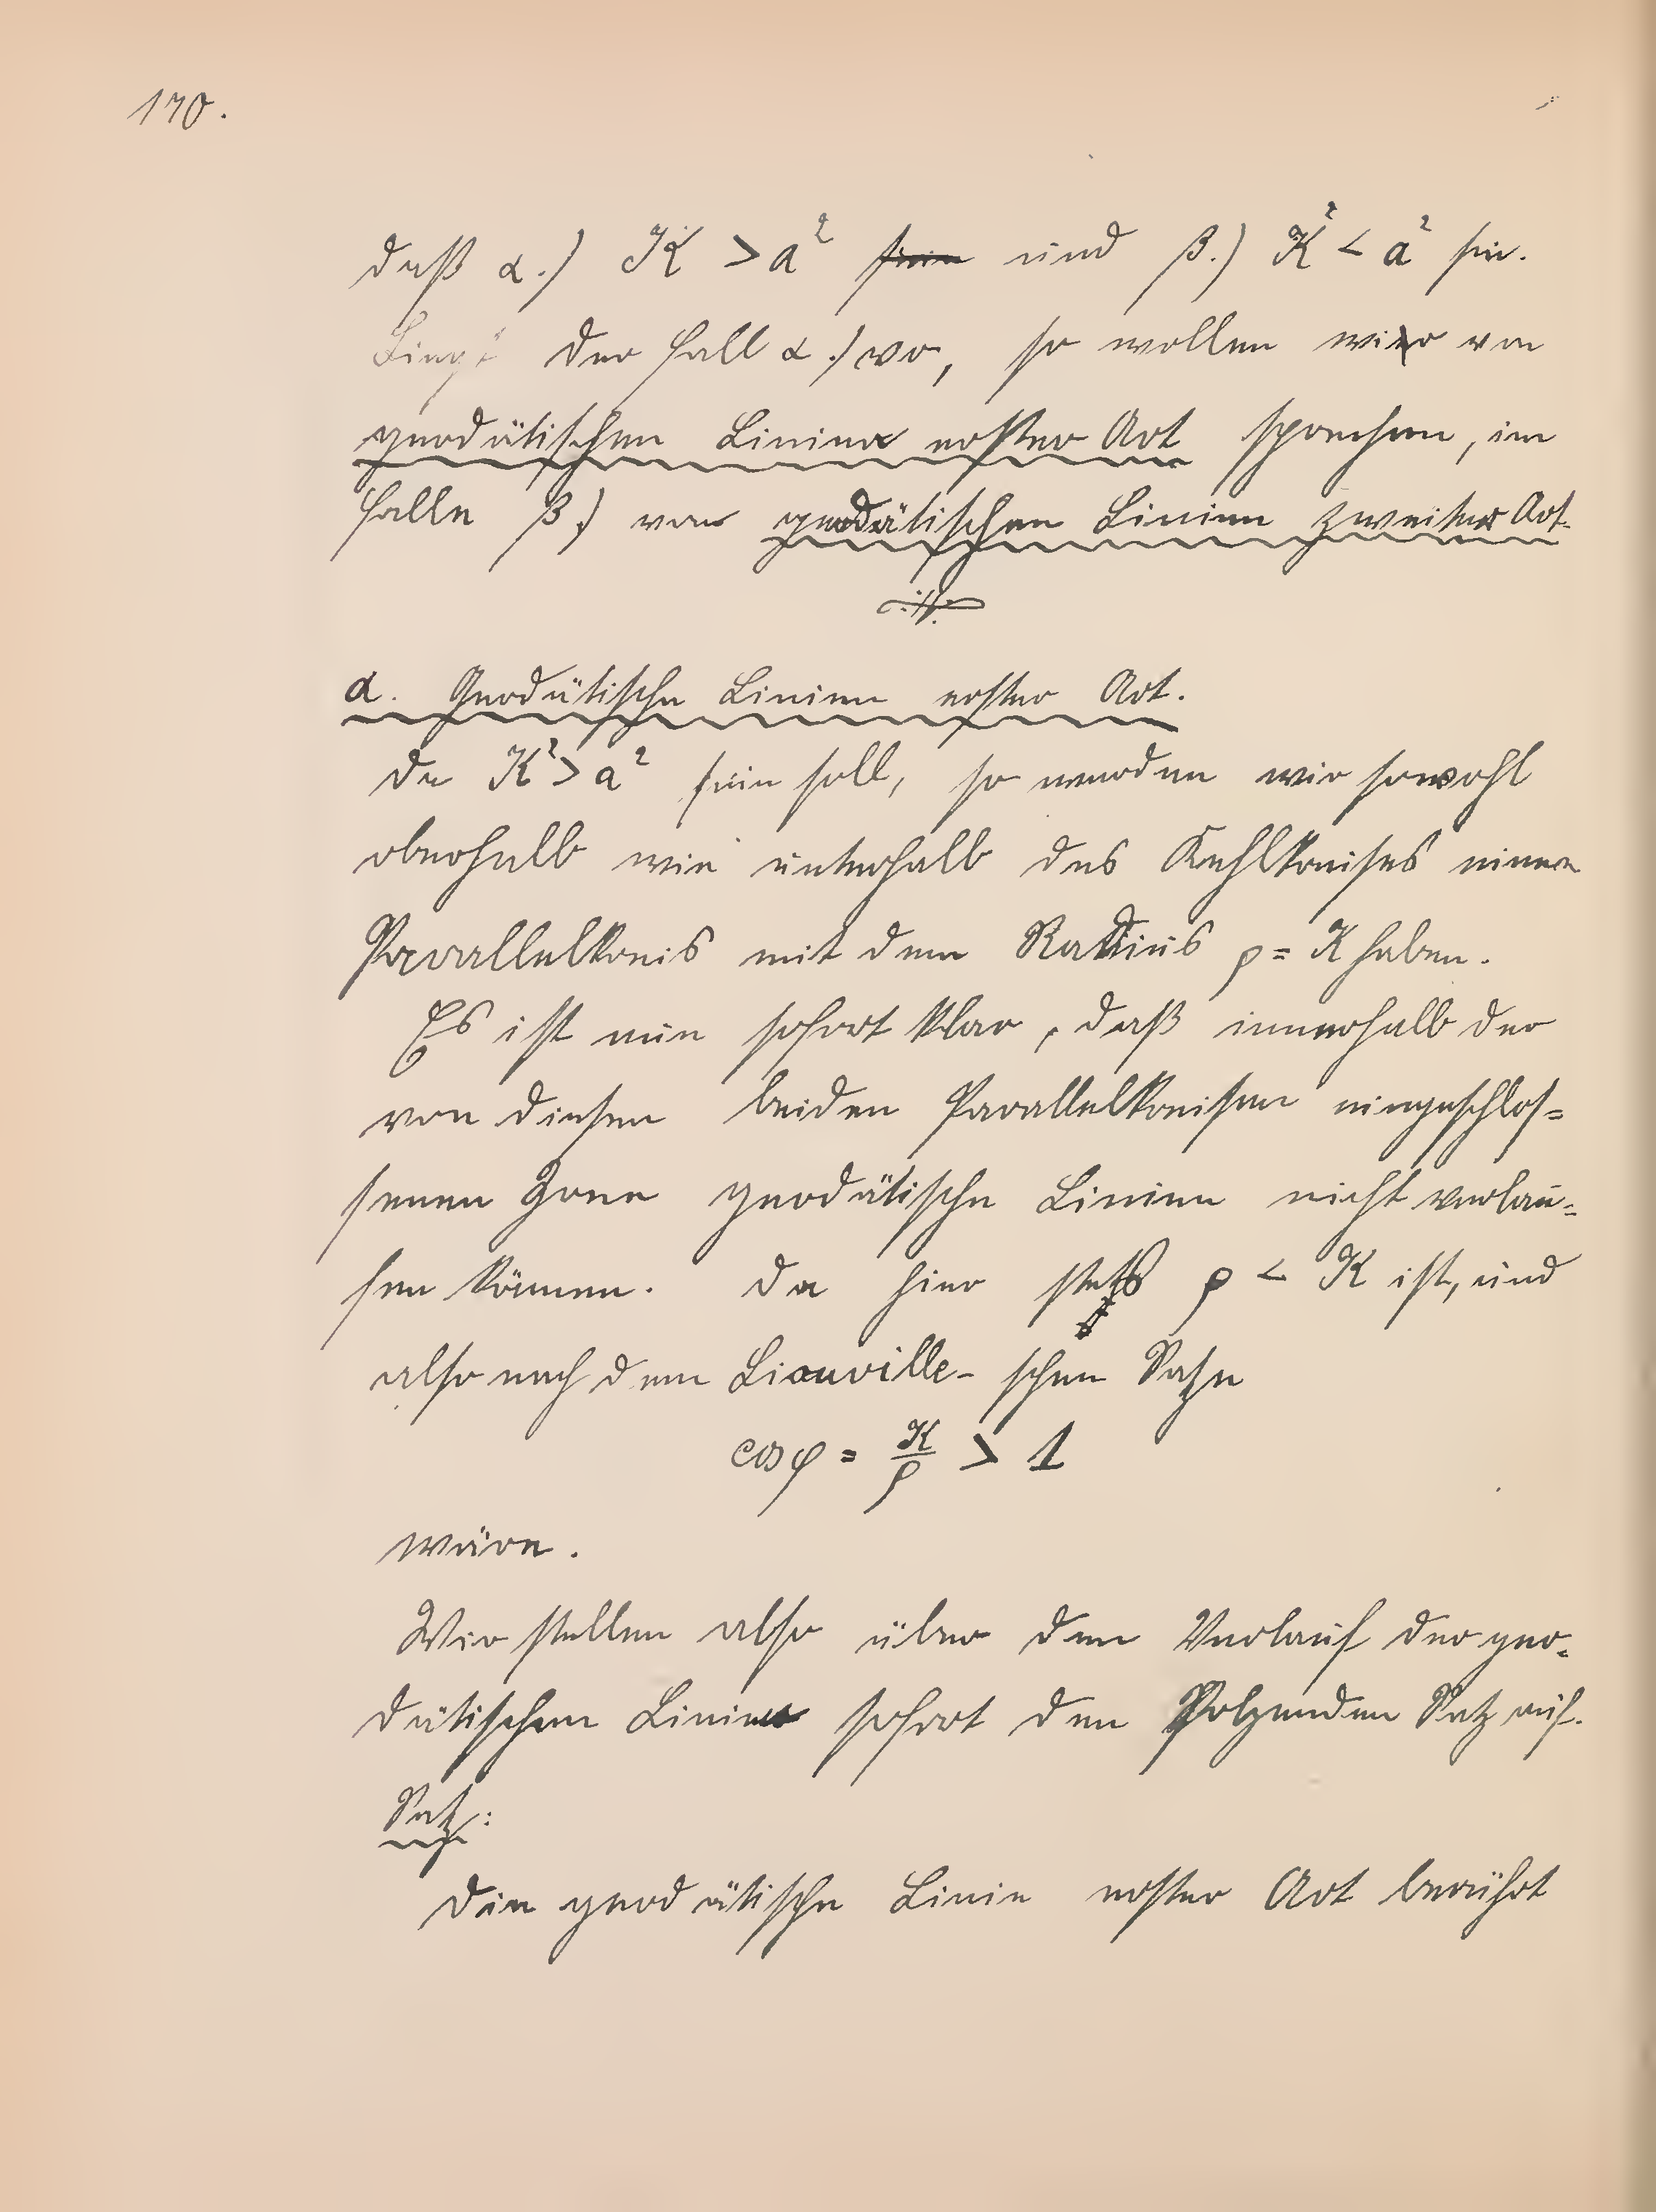 170.
daß α.) K > a² ~~sein~~ und β.) K² < a² sei.
Liegt der Fall α.) vor, so wollen wir von
geodätischen Linien erster Art sprechen, im
Falle β.) von geodätischen Linien zweiter Art.
α. Geodätische Linien erster Art.
Da K² > a² sein soll, so werden wir sowohl
oberhalb wie unterhalb des Kehlkreises einen
Parallelkreis mit dem Radius ρ = K haben.
Es ist nun sofort klar, daß innerhalb der
von diesen beiden Parallelkreisen eingeschlos=
senen Zone geodätische Linien nicht verlau=
fen können. Da hier stets ρ < K ist, und
also nach dem Liouville-schen Satze
cos φ = K/ρ > 1
wäre.
Wir stellen also über den Verlauf der geo=
dätischen Linien sofort den folgenden Satz auf.
Satz:
Die geodätische Linie erster Art berührt